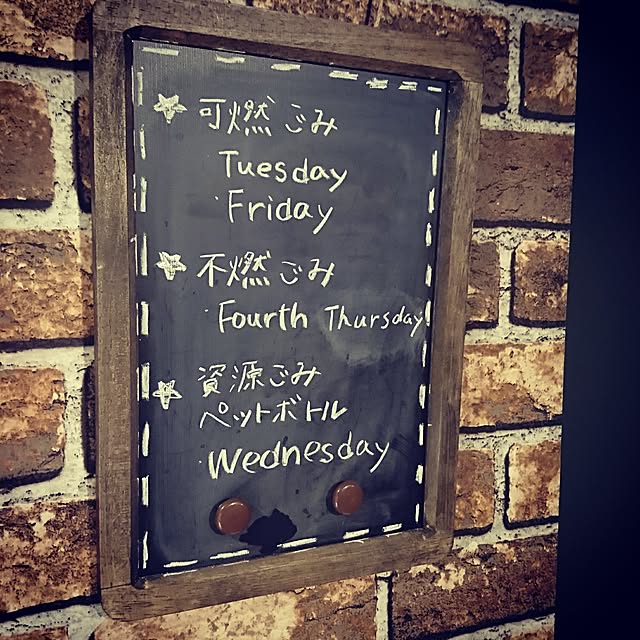 可燃ごみ
Tuesday
Friday
不燃ごみ
Fourth Thursday
資源ごみ
ペットボトル
Wednesday